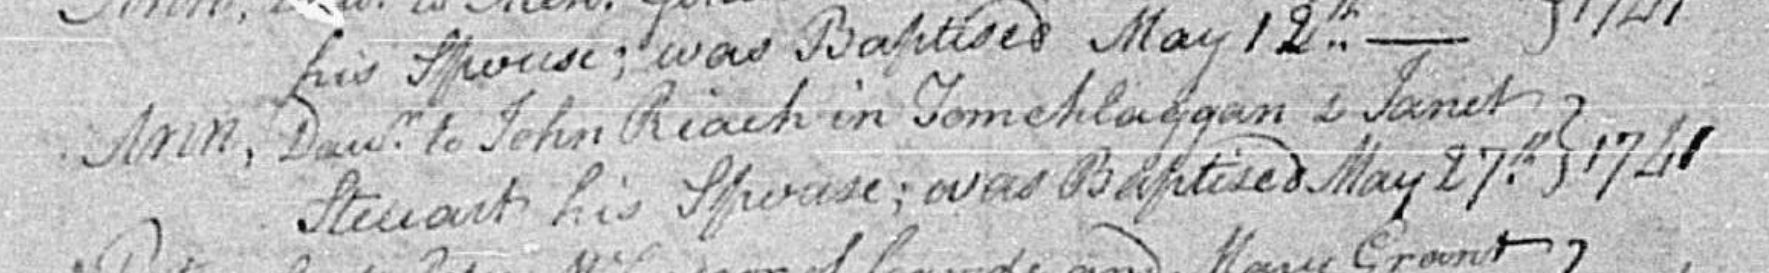 his Spouse; was Baptised May 12th. — } 1741
Ann, Dawr. to John Riach in Tomchlaggan & Janet
Steuart his Spouse; was Baptised May 27th. } 1741
of and Mary Grant